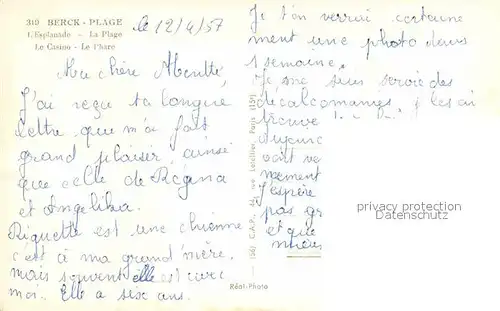 319 BERCK - PLAGE
L'Esplanade - La Plage
Le Casino - Le Phare
le 12/4/57
Ma chère
J'ai reçu ta longue
lettre qui m'a fait
grand plaisir, ainsi
que celle de Régina
et Angelika.
Riquette est une chienne
c'est à ma grand'mère.
mais souvent elle est avec
moi. Elle a six ans.
Je t'en verrai certaine
ment une photo dans
1 semaine.
Je me suis servie des
décalcomanies, je les ai
trouvé
aucunc
vont ve
mement
J'espère
pas gr
et que
mieux
(56) C.A.P., rue Letellier, Paris (15e)
Réal-Photo
privacy protection
Datenschutz